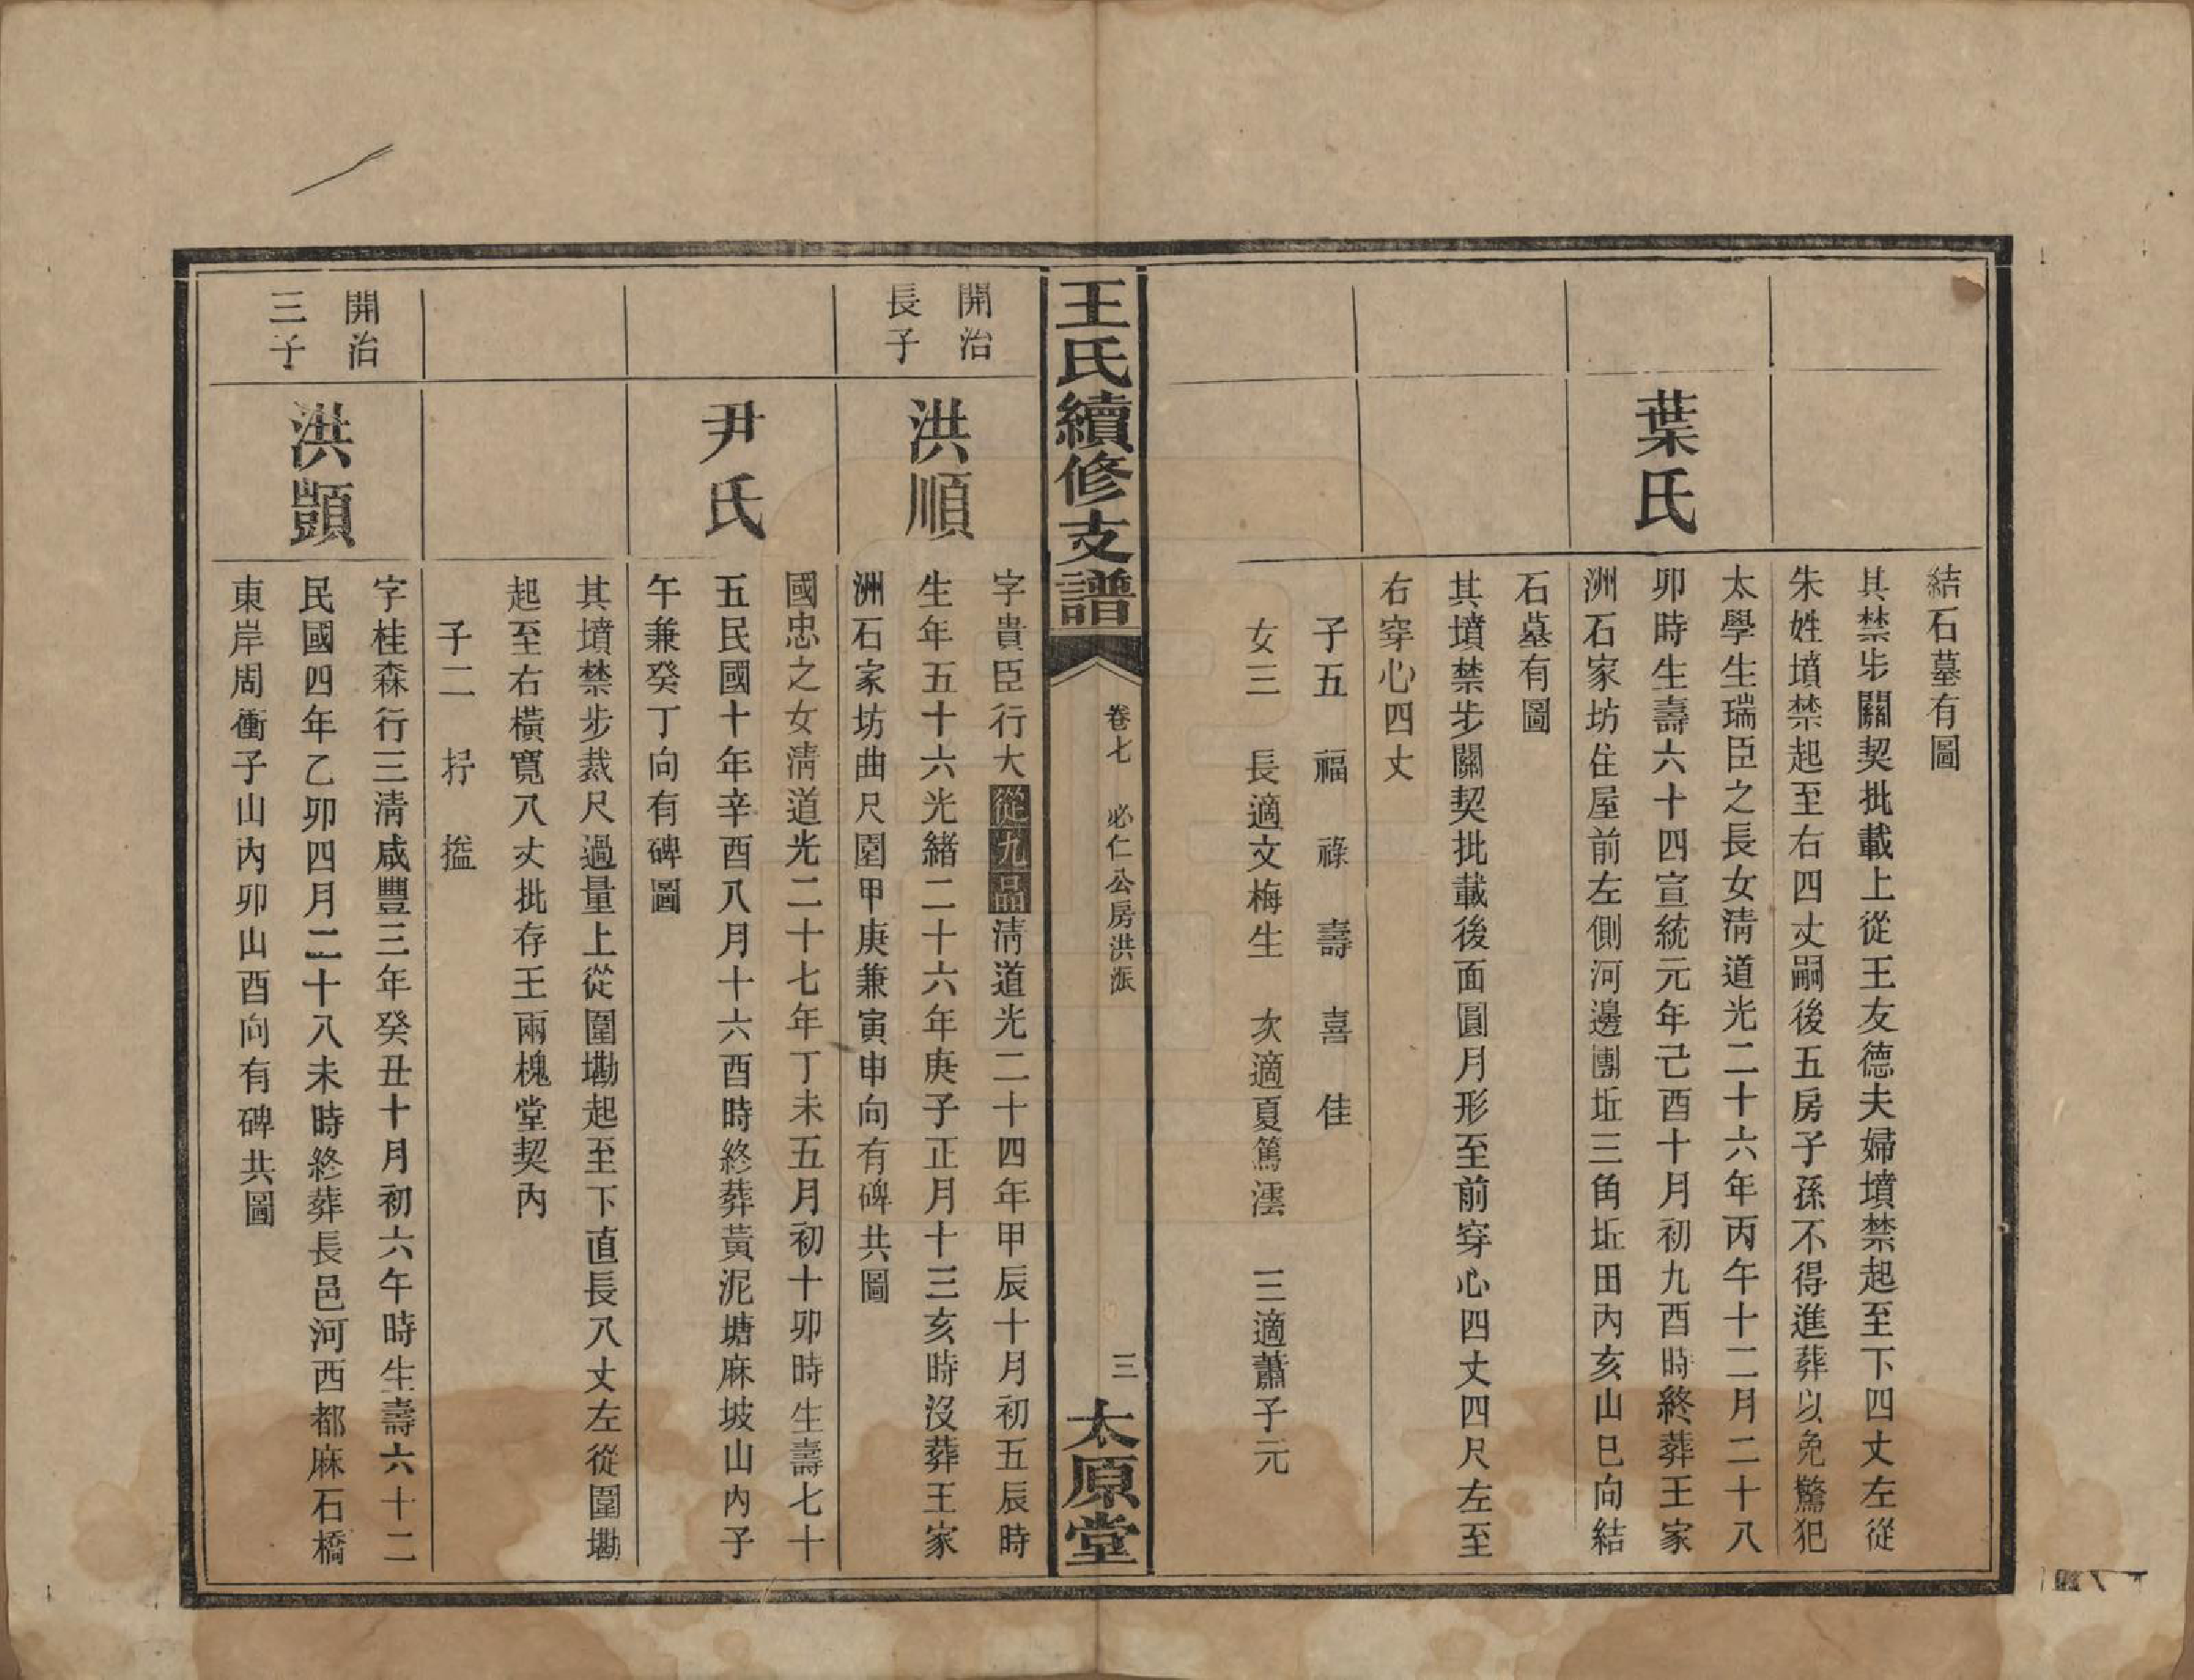 結石墓有圖
其禁步關契批載上從王友德夫婦墳禁起至下四丈左從
朱姓墳禁起至右四丈嗣後五房子孫不得進葬以免驚犯
葉氏
太學生瑞臣之長女淸道光二十六年丙午十二月二十八
卯時生壽六十四宣統元年己酉十月初九酉時終葬王家
洲石家坊住屋前左側河邊團坵三角坵田內亥山巳向結
石墓有圖
其墳禁步關契批載後面圓月形至前穿心四丈四尺左至
右穿心四丈
子五　福　祿　壽　喜　佳
女三　長適文梅生　次適夏篤澐　三適蕭子元
王氏續修支譜
卷七　必仁公房洪派
三
太原堂
開治
長子
洪順
字貴臣行大從九品淸道光二十四年甲辰十月初五辰時
生年五十六光緖二十六年庚子正月十三亥時沒葬王家
洲石家坊曲尺園甲庚兼寅申向有碑共圖
尹氏
國忠之女淸道光二十七年丁未五月初十卯時生壽七十
五民國十年辛酉八月十六酉時終葬黃泥塘麻坡山內子
午兼癸丁向有碑圖
其墳禁步裁尺過量上從圍塝起至下直長八丈左從圍塝
起至右橫寬八丈批存王兩槐堂契內
子二　抒　㨪
開治
三子
洪顗
字桂森行三淸咸豐三年癸丑十月初六午時生壽六十二
民國四年乙卯四月二十八未時終葬長邑河西都麻石橋
東岸周衝子山內卯山酉向有碑共圖